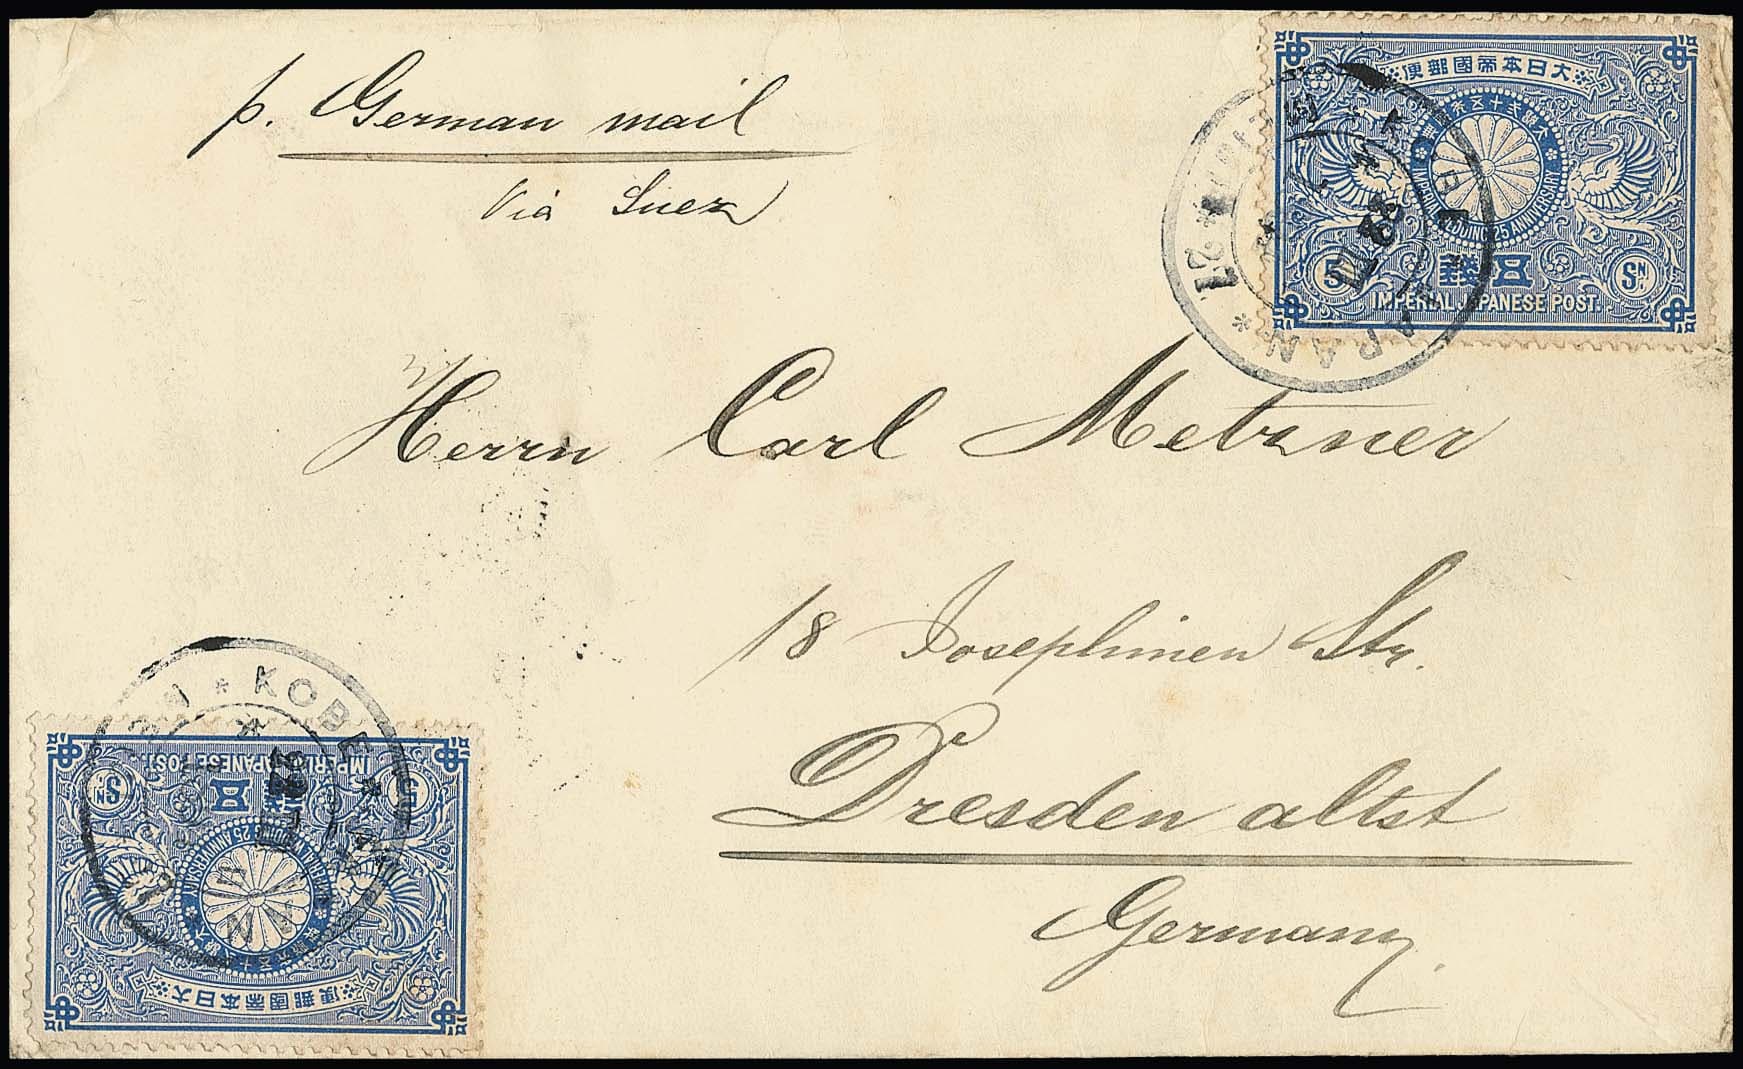 p. German mail
Via Suez
大日本帝國郵便
IMPERIAL WEDDING 25 ANNIVERSARY
5 五錢 SN
IMPERIAL JAPANESE POST.
KOBE
JAPAN
Herrn Carl Metzner
18 Josephinen Str.
Dresden altst
Germany.
KOBE
IMPERIAL JAPANESE POST.
5 五錢 SN
IMPERIAL WEDDING 25 ANNIVERSARY
大日本帝國郵便